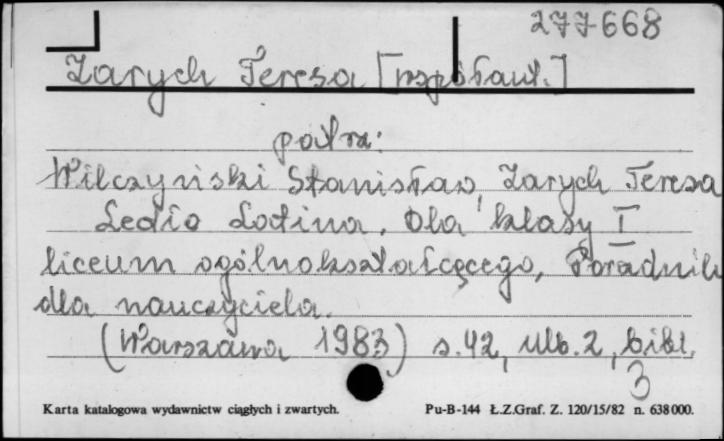 277668
Zarych Teresa [współaut.]
patrz:
Wilczyński Stanisław, Zarych Teresa
Lectio Latina. Dla klasy I
liceum ogólnokształcącego, Poradnik
dla nauczyciela.
(Warszawa 1983) s. 42, ulb. 2, bibl.
3
Karta katalogowa wydawnictw ciągłych i zwartych. Pu-B-144 Ł.Z.Graf. Z. 120/15/82 n. 638000.